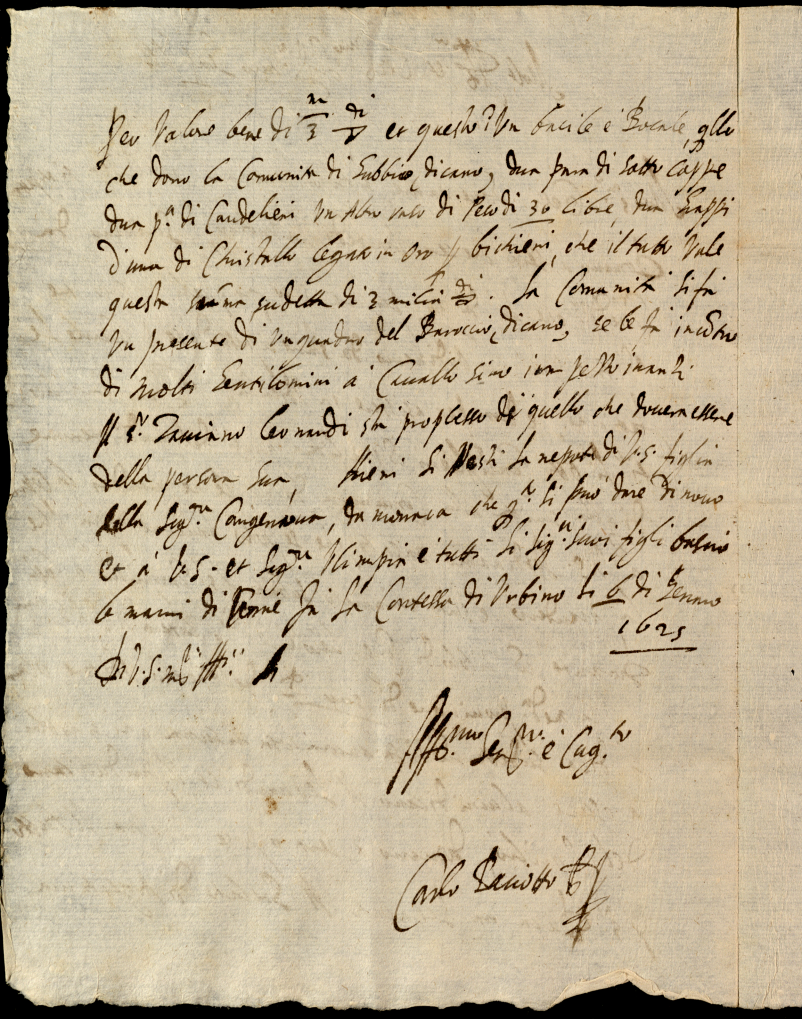 Per Valore bene di 3 m di et questo? Un bacile e Bocale, qllo
che dono la Comunità di Gubbio, dicano, dua para di sotto coppe
dua p.a di Candelieri un Altro vaso di Peso di 30 libre, dua
d'una di Christallo legato in oro p bichieri, che il tutto Vale
questa suma sudetta di 3 milia di. La Comunità li fa
Un presente di un quadro del Baroccio, dicano, se le fa incontro
di molti Gentilomini à Cavallo sino inanti
Il S.r Leonardi sta di quello che doveva essere
della persona sua, Hieri si la nepote di V.S. figlia
della Sig.ra da monaca che li può dare di novo
et à V.S. et Sig.ra Olimpia e tutti li Sig.ri suoi figli bascio
le mani di Urbino li 6 di Gennaro
1625
Di V.S. m.to Ill.re
Aff.mo Ser.re e Cug.no
Carlo Paciotto